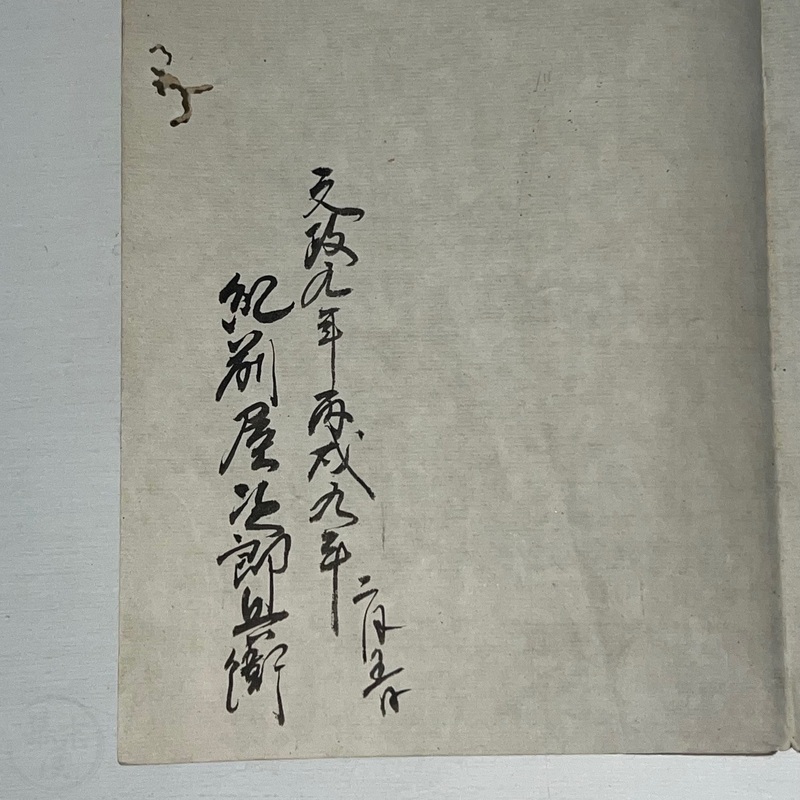 文政九年丙戌九年
二月吉日
紀前屋次郎兵衛